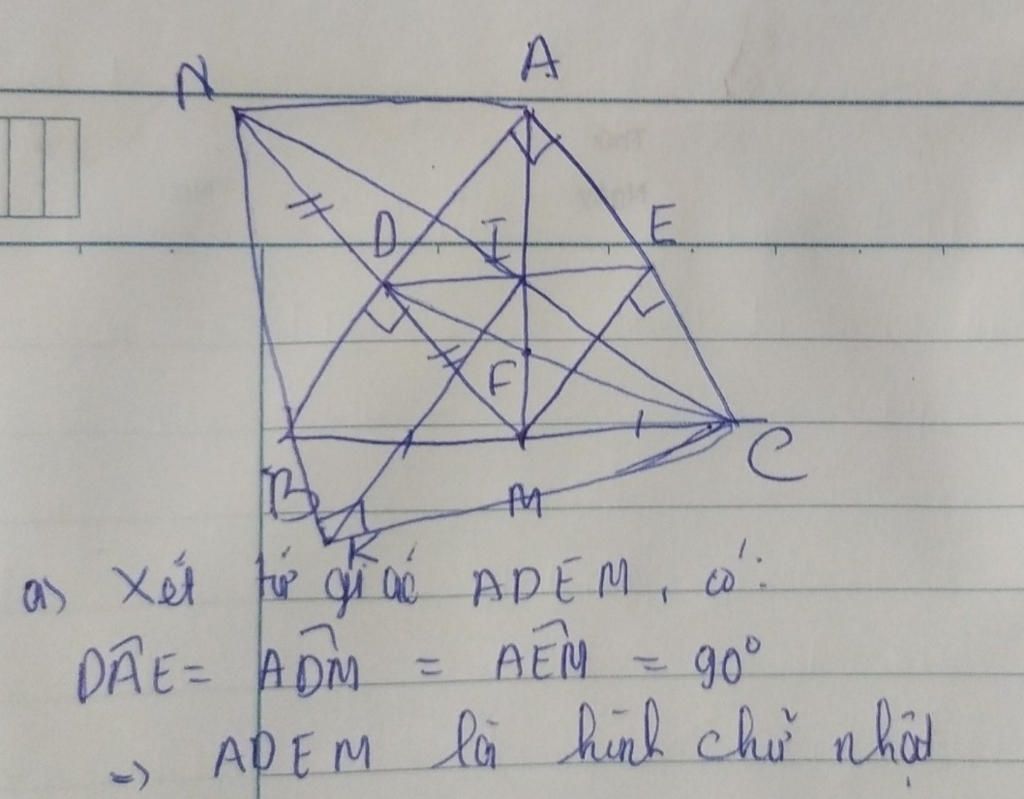 N
A
D
I
E
F
B
M
C
K
a) Xét tứ giác ADEM, có:
DÂE = AD̂M = AÊM = 90°
=> ADEM là hình chữ nhật